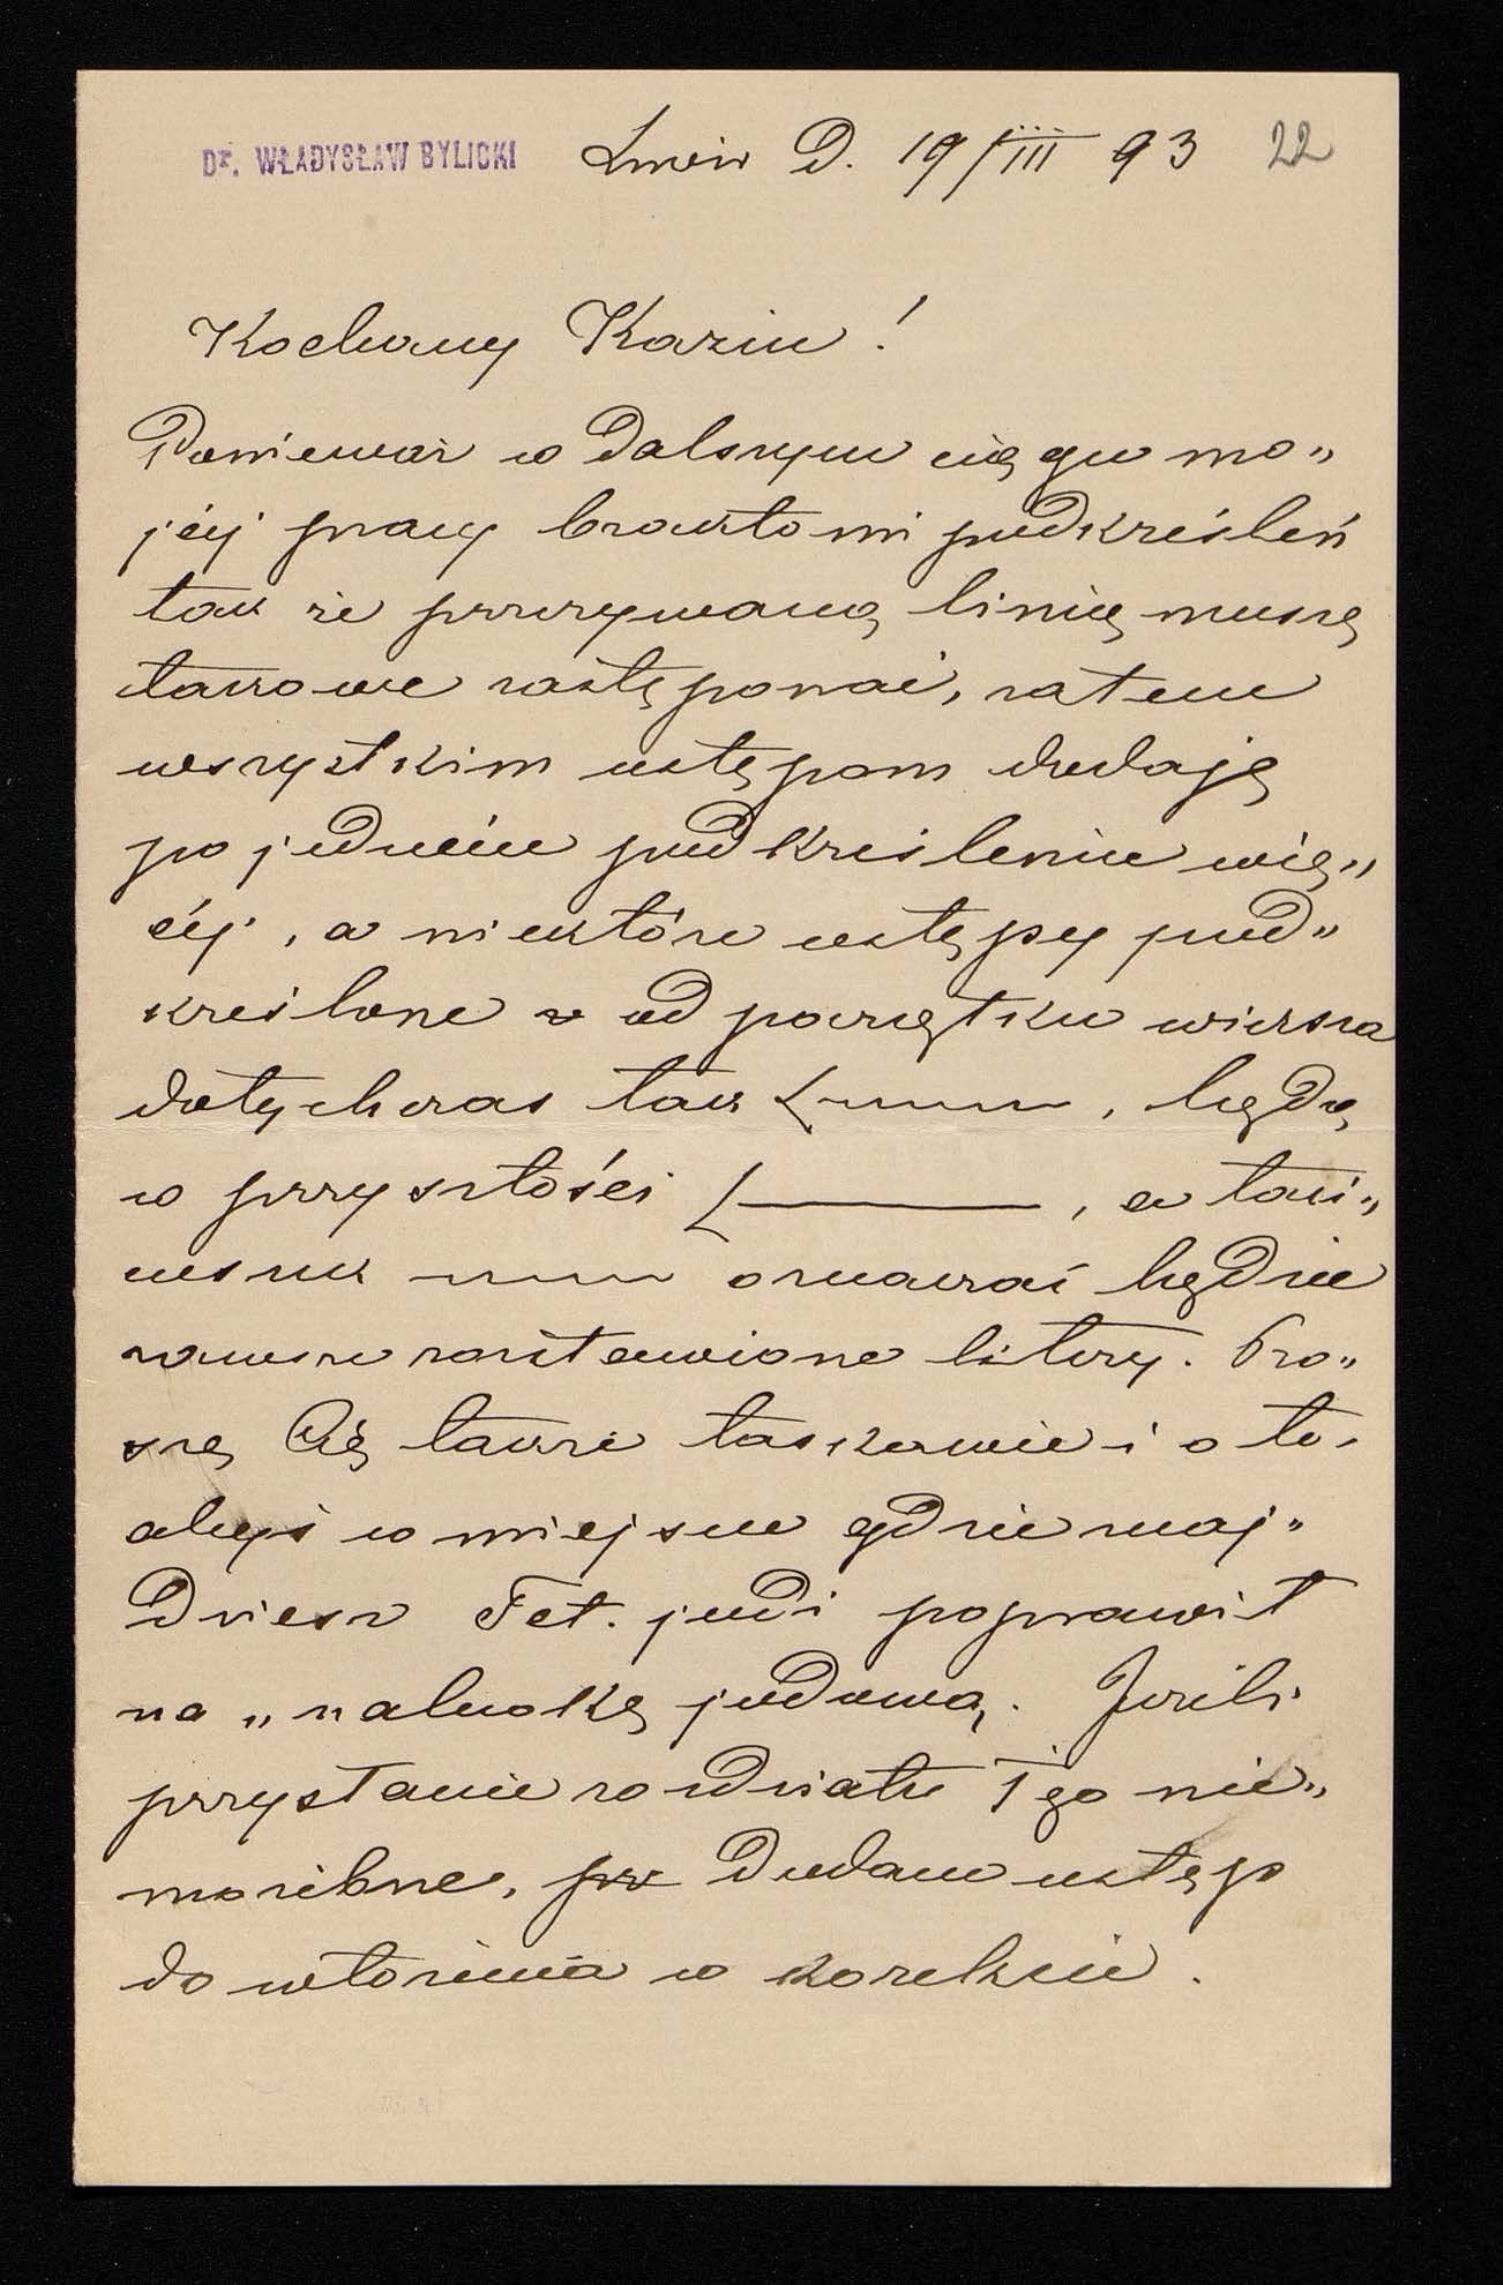 Dr. WŁADYSŁAW BYLICKI Lwów D. 19/III 93 22
Kochany Kaziu!
Ponieważ w dalszym ciągu mo„
jéj pracy brakło mi podkreśleń
tak że przerywaną linię muszę
takowe zastępować, zatem
wszystkim ustępom dodaję
po jednéw podkreśleniu wię„
céj, a niektóre ustępy pod„
kreślone od początku wiersza
dotychczas tak , będą
w przyszłości , a taki„
wszak oznaczać będzie
zawsze rozstawione litery. Pro„
szę Cię także łaskawie i o to,
abyś w miejscu gdzie znaj„
dziesz Tet. jodi poprawił
na „nalewkę jodową. Jeżeli
przystanie rozdziału Igo nie„
możebne, dodam ustęp
do włożenia w korekcie.